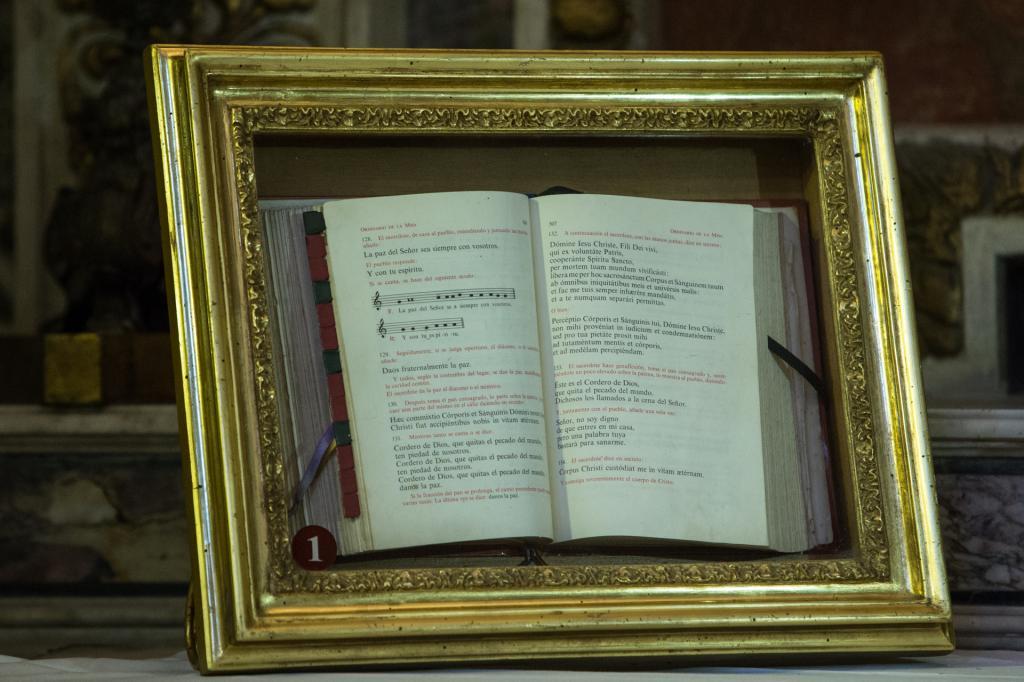 ORDINARIO DE LA MISA
128. El sacerdote, de cara al pueblo, extendiendo y juntando las manos,
añade:
La paz del Señor sea siempre con vosotros.
El pueblo responde:
Y con tu espíritu.
Si se canta, se hace del siguiente modo:
La paz del Señor se a siempre con vosotros.
Y con tu es pí ri tu.
129. Seguidamente, si se juzga oportuno, el diácono, o el
añade:
Daos fraternalmente la paz.
Y todos, según la costumbre del lugar, se dan la paz
la caridad común.
El sacerdote da la paz al diácono o al ministro.
130. Después toma el pan consagrado, lo parte sobre la patena,
una parte del mismo en el cáliz diciendo en secreto:
Hæc commíxtio Córporis et Sánguinis Dómini nostri
Christi fiat accipiéntibus nobis in vitam
131. Mientras tanto se canta o se dice:
Cordero de Dios, que quitas el pecado del mundo,
ten piedad de nosotros.
Cordero de Dios, que quitas el pecado del mundo,
ten piedad de nosotros.
Cordero de Dios, que quitas el pecado del mundo,
danos la paz.
Si la fracción del pan se prolonga, el canto precedente
varias veces. La última vez se dice: danos la paz.
507
ORDINARIO DE LA MISA
132. A continuación el sacerdote, con las manos juntas, dice en secreto:
Dómine Iesu Christe, Fili Dei vivi,
qui ex voluntáte Patris,
cooperánte Spíritu Sancto,
per mortem tuam mundum vivificásti:
líbera me per hoc sacrosánctum Corpus et Sánguinem tuum
ab ómnibus iniquitátibus meis et univérsis malis:
et fac me tuis semper inhærére mandátis,
et a te numquam separári permíttas.
O bien:
Percéptio Córporis et Sánguinis tui, Dómine Iesu Christe,
non mihi provéniat in iudícium et condemnatiónem:
sed pro tua pietáte prosit mihi
ad tutaméntum mentis et córporis,
et ad medélam percipiéndam.
133. El sacerdote hace genuflexión, toma el pan consagrado y,
un poco elevado sobre la patena, lo muestra al pueblo, diciendo:
Este es el Cordero de Dios,
que quita el pecado del mundo.
Dichosos los llamados a la cena del Señor.
Y, juntamente con el pueblo, añade una sola vez:
Señor, no soy digno
de que entres en mi casa,
pero una palabra tuya
bastará para sanarme.
134. El sacerdote dice en secreto:
Corpus Christi custódiat me in vitam ætérnam.
Y comulga reverentemente el cuerpo de Cristo.
1